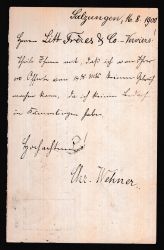 Salzungen, 16.8.1900
Herren Litt Frères & Co - Verviers
Theile Ihnen mit, daß ich von Ihrer
Offerte vom keinen Gebrauch
machen kann, da ich keinen Bedarf
in habe.
Hochachtend
Chr. Wehner.